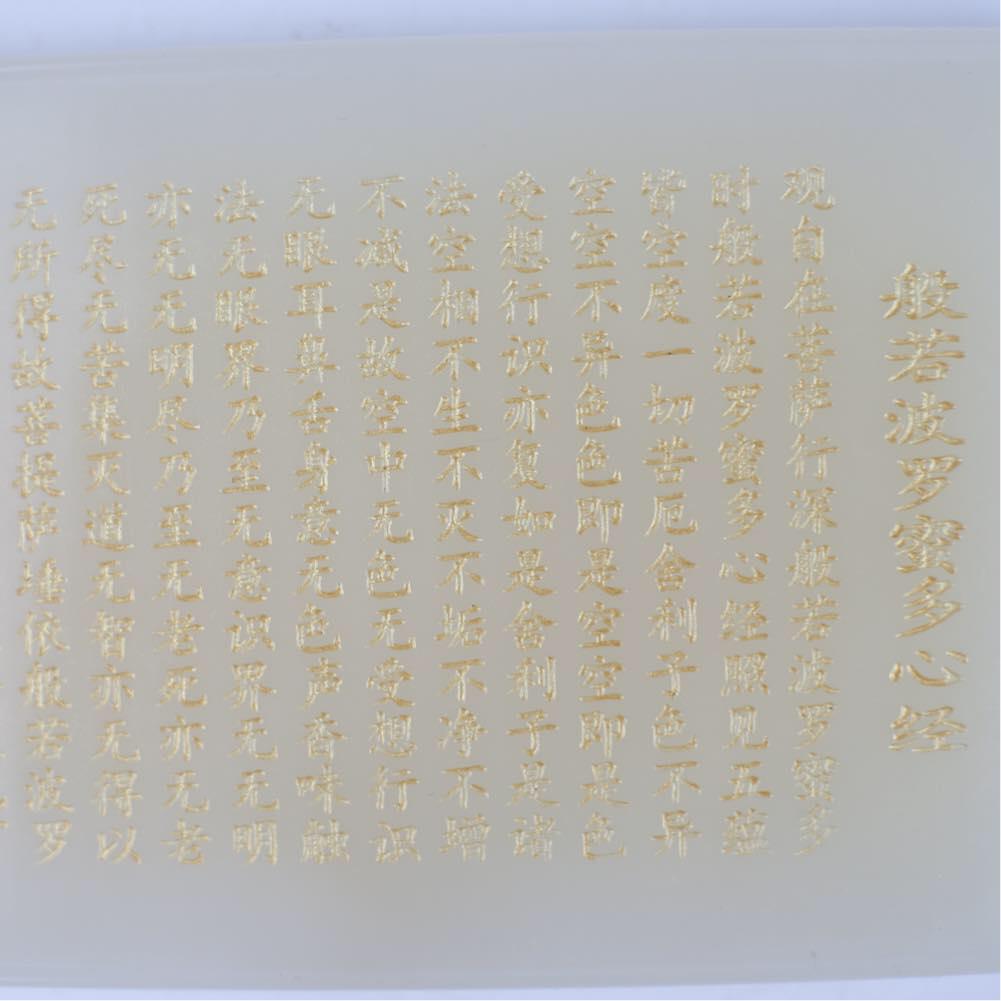 般若波罗蜜多心经
观自在菩萨行深般若波罗蜜多
时般若波罗蜜多心经照见五蕴
皆空度一切苦厄舍利子色不异
空空不异色色即是空空即是色
受想行识亦复如是舍利子是诸
法空相不生不灭不垢不净不增
不减是故空中无色无受想行识
无眼耳鼻舌身意无色声香味触
法无眼界乃至无意识界无无明
亦无无明尽乃至无老死亦无老
死尽无苦集灭道无智亦无得以
无所得故菩提萨埵依般若波罗